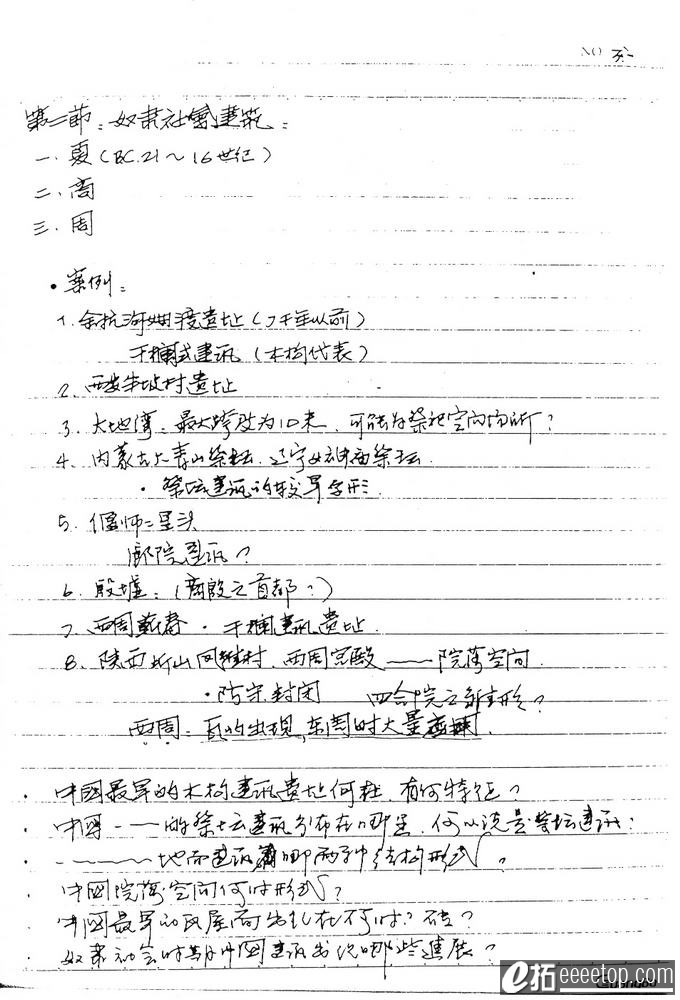 NO
第二節：奴隶社會建筑：
一. 夏（BC.21～16世纪）
二. 商
三. 周
• 案例：
1. 余杭河姆渡遗址（7千年以前）
干欄式建筑（木构代表）
2. 西安半坡村遗址
3. 大地湾：最大跨度为10米，可能为祭祀空间场所？
4. 内蒙古大青山祭坛. 辽宁女神庙祭坛.
• 祭坛建筑的较早
5. 偃师二里头
廊院建筑？
6. 殷墟：（商殷之首都？）
7. 西周蕲春 • 干欄建筑遗址.
8. 陕西岐山凤雏村. 西周宫殿 —— 院落空间.
• 防守. 封闭 四合院之雏形？
西周：瓦的出现, 东周时大量
• 中國最早的木构建筑遗址何在. 有何特征？
• 中國 --- 的祭坛建筑分布在哪里. 何以说是祭坛建筑？
• 地面建筑哪两种结构形式？
• 中國院落空间何时形式？
• 中國最早的瓦屋面出现在 时？砖？
• 奴隶社会时期中國建筑出现哪些進展？
e拓 eeeetop.com
Guangbo